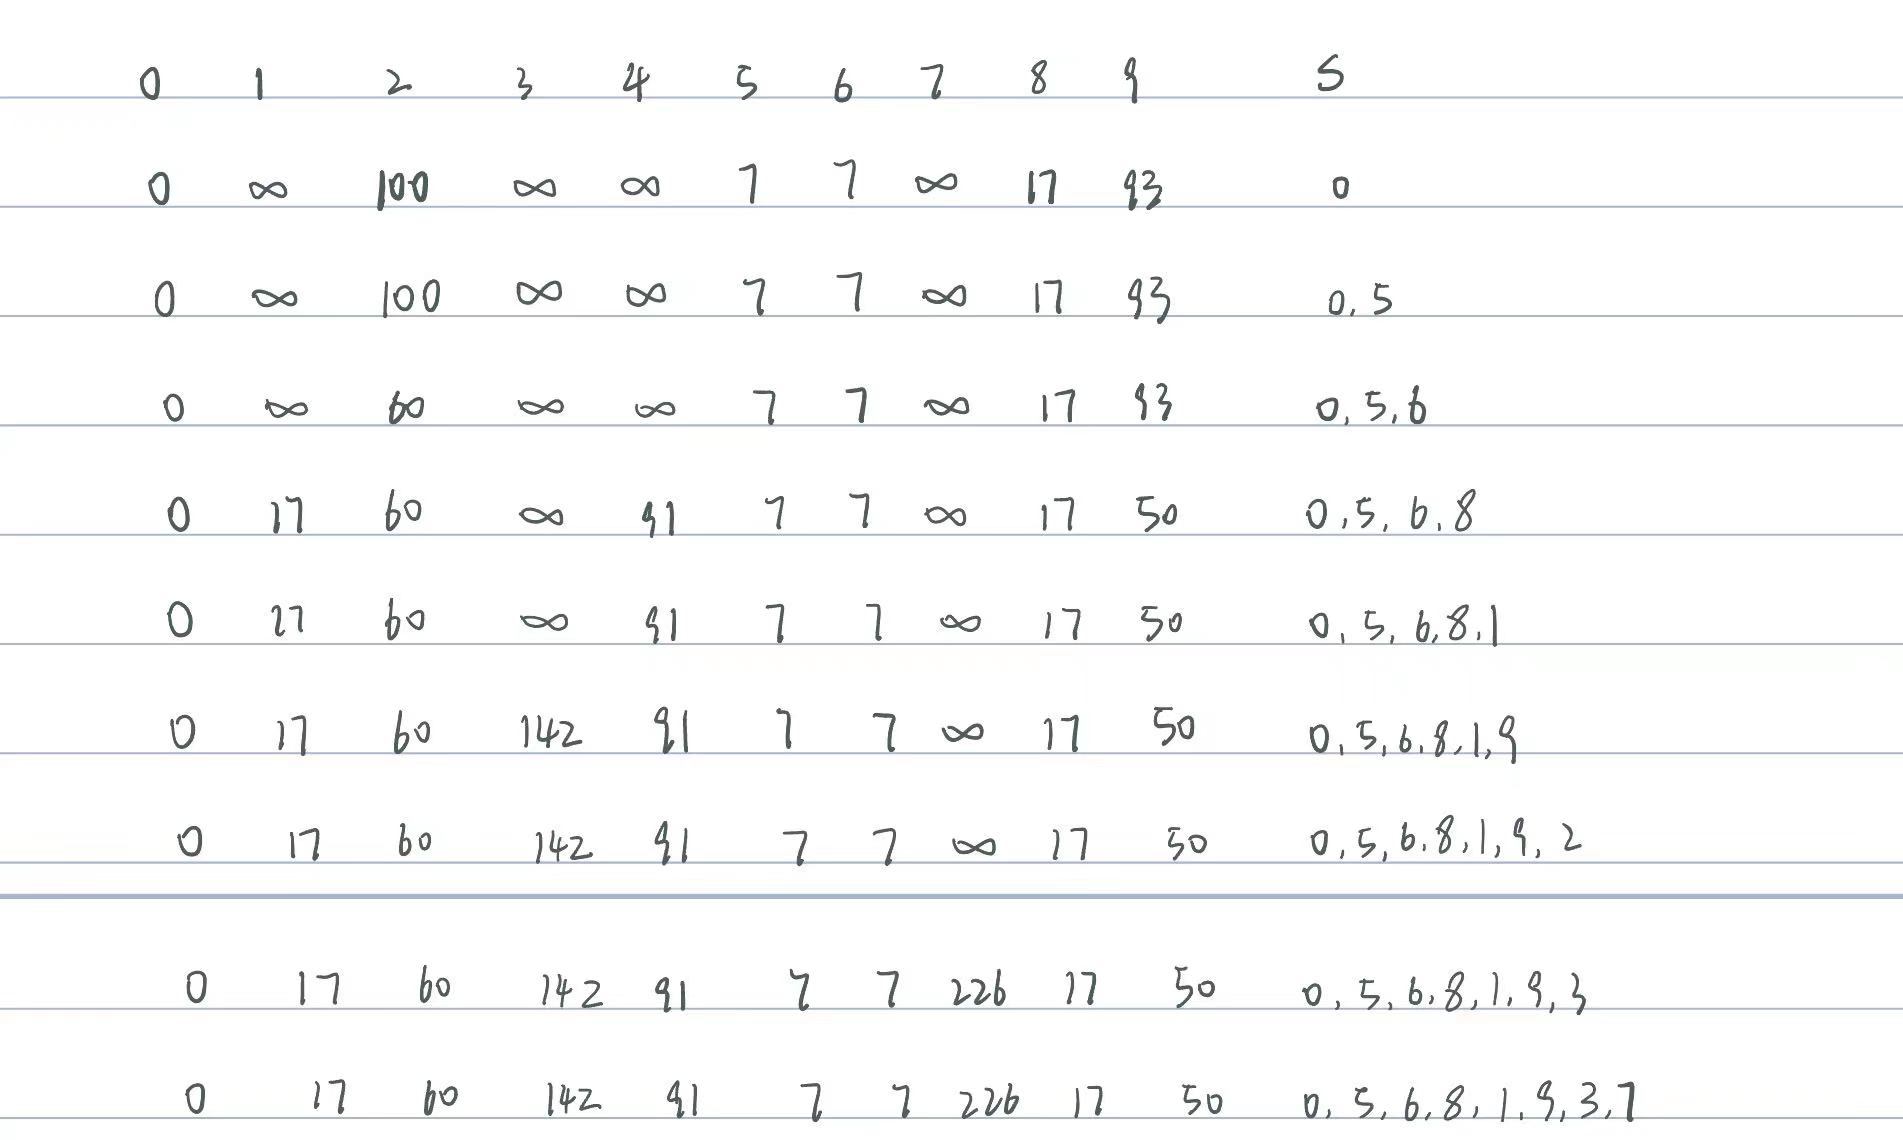 0 1 2 3 4 5 6 7 8 9 S
0 ∞ 100 ∞ ∞ 7 7 ∞ 17 93 0
0 ∞ 100 ∞ ∞ 7 7 ∞ 17 93 0, 5
0 ∞ 60 ∞ ∞ 7 7 ∞ 17 93 0, 5, 6
0 17 60 ∞ 91 7 7 ∞ 17 50 0, 5, 6, 8
0 27 60 ∞ 91 7 7 ∞ 17 50 0, 5, 6, 8, 1
0 17 60 142 91 7 7 ∞ 17 50 0, 5, 6, 8, 1, 9
0 17 60 142 91 7 7 ∞ 17 50 0, 5, 6, 8, 1, 9, 2
0 17 60 142 91 7 7 226 17 50 0, 5, 6, 8, 1, 9, 3
0 17 60 142 91 7 7 226 17 50 0, 5, 6, 8, 1, 9, 3, 7